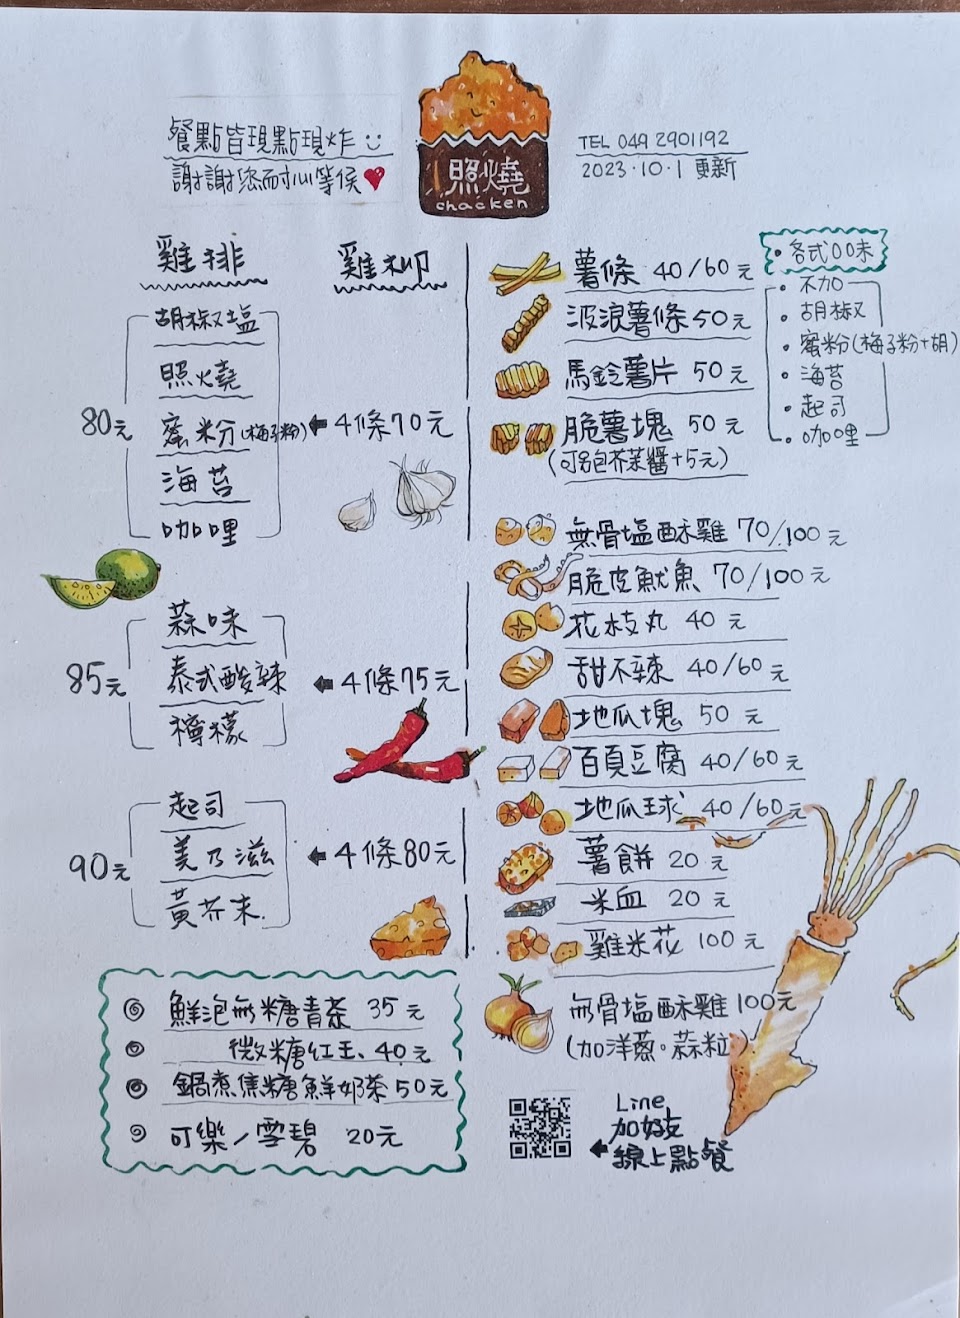 餐點皆現點現炸
謝謝您耐心等侯
照燒
chacken
TEL 049 2901192
2023・10・1 更新
雞排
雞柳
胡椒塩
照燒
80元
蜜粉(梅子粉)
4條70元
海苔
咖哩
蒜味
85元
泰式酸辣
4條75元
檸檬
起司
90元
美乃滋
4條80元
黃芥末
鮮泡無糖青茶 35元
微糖紅玉 40元
鍋煮焦糖鮮奶茶50元
可樂/雪碧 20元
薯條 40/60元
波浪薯條50元
馬鈴薯片 50元
脆薯塊 50元
(可名包芥茉醬+5元)
各式口味
不加
胡椒
蜜粉(梅子粉+胡)
海苔
起司
咖哩
無骨塩酥雞 70/100元
脆皮魷魚 70/100元
花枝丸 40元
甜不辣 40/60元
地瓜塊 50元
百頁豆腐 40/60元
地瓜球 40/60元
薯餅 20元
米血 20元
雞米花 100元
無骨塩酥雞100元
(加洋蔥。蒜粒
Line
加好友
線上點餐